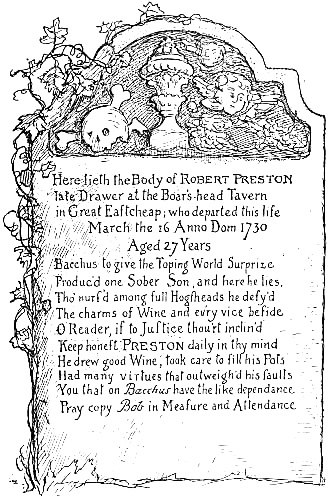 Here lieth the Body of ROBERT PRESTON
late Drawer at the Boar's-head Tavern
in Great Eaſtcheap; who departed this life
March the 16 Anno Dom 1730
Aged 27 Years
Bacchus to give the Toping World Surprize
Produc'd one Sober Son, and here he lies.
Tho' nurſ'd among full Hogſheads he defy'd
The charms of Wine and ev'ry vice beſide
O Reader, if to Juſtice thou'rt inclin'd
Keep honeſt PRESTON daily in thy mind
He drew good Wine, took care to fill his Pots
Had many virtues that outweigh'd his faults
You that on Bacchus have the like dependance
Pray copy Bob in Meaſure and Attendance.